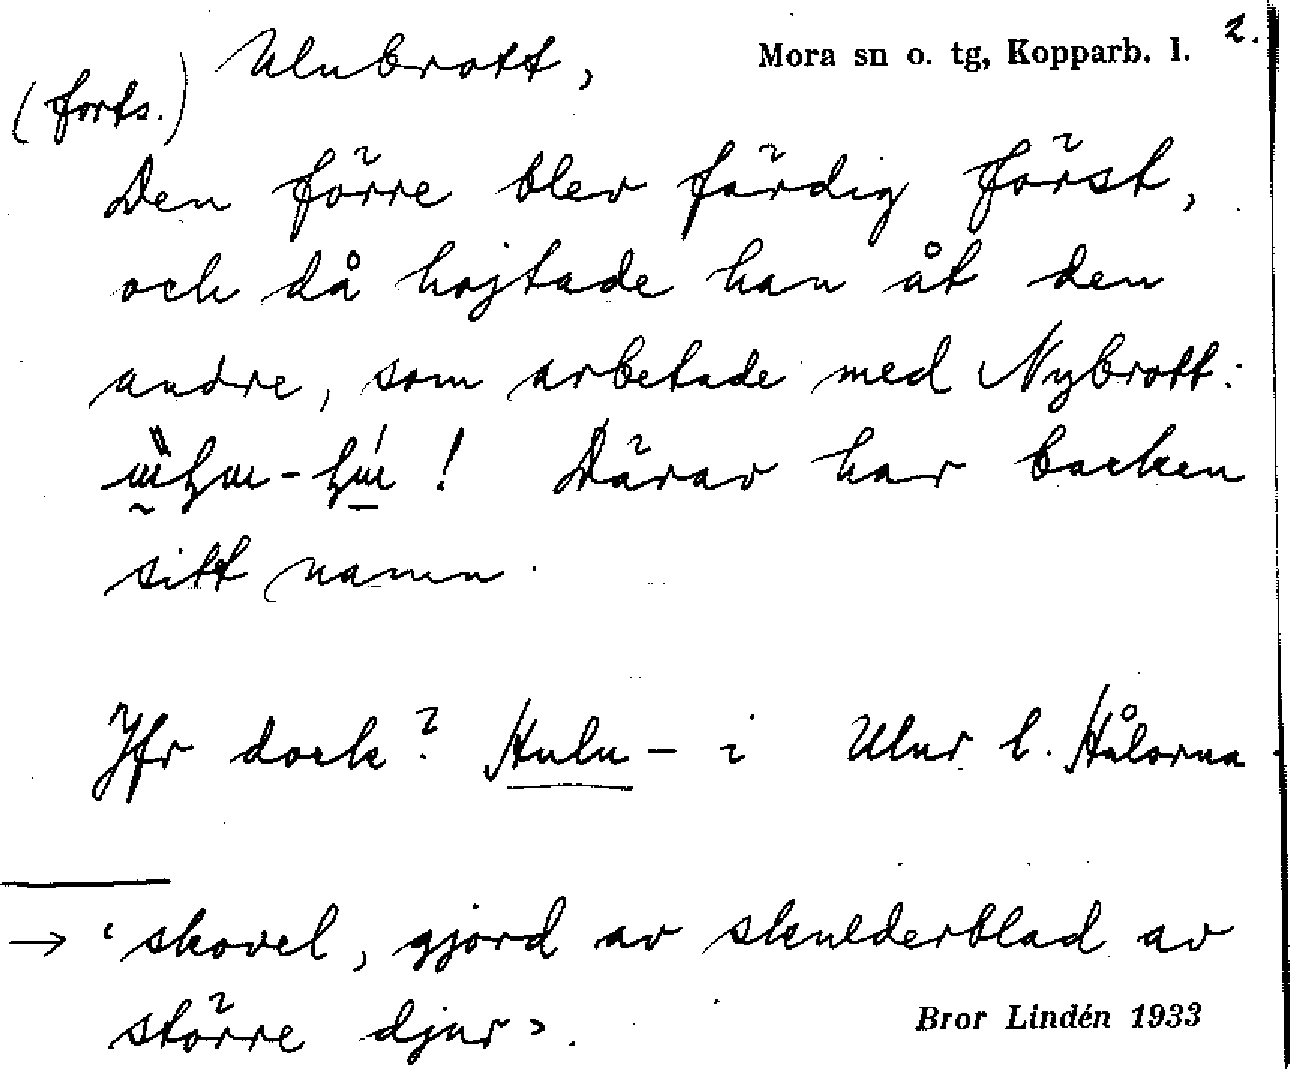 Mora sn o. tg, Kopparb. l. 2.
(forts.) Ulubrott,
Den förre blev färdig först,
och då hojtade han åt den
andre, som arbetade med Nybrott:
! Därav har backen
sitt namn.
Jfr dock? Hulu- i Ulur l. Hålorna.
→ ‘skovel, gjord av skulderblad av
större djur’.
Bror Lindén 1933